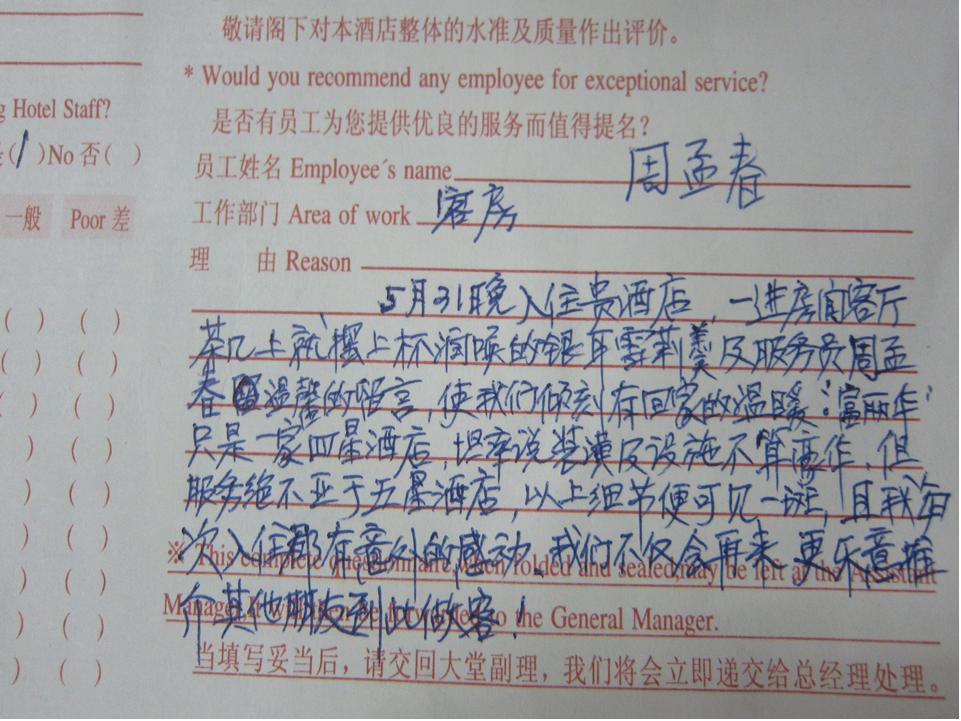 敬请阁下对本酒店整体的水准及质量作出评价。
* Would you recommend any employee for exceptional service?
g Hotel Staff?
是否有员工为您提供优良的服务而值得提名?
是(/)No 否( )
员工姓名 Employee´s name 周孟春
工作部门 Area of work 客房
一般 Poor 差
理 由 Reason
5月31日晚入住贵酒店,一进房间客厅
( ) ( )
茶几上就摆上一杯润喉的银耳雪莉羹及服务员周孟
) ( )
春温馨的留言,使我们倾刻有回家的温暖“富丽华”
( ) ( )
只是一家四星酒店,坦率说装潢及设施不算豪华,但
) ( )
服务绝不亚于五星酒店,以上细节便可见一斑,且我每
) ( )
次入住都有意外的感动.我们不仅会再来 更乐意推
) ( )
※ This complete questionnaire,when folded and sealed,may be left at the Assistant
) ( )
介其他朋友到此做客!
Manager, to the General Manager.
) ( )
当填写妥当后,请交回大堂副理,我们将会立即递交给总经理处理。
) ( )